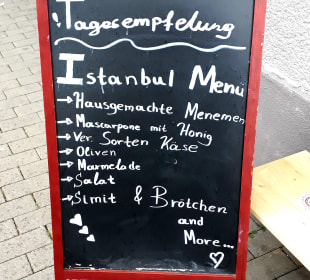 Tagesempfelung
Istanbul Menü
→ Hausgemachte Menemen
→ Mascarpone mit Honig
→ Ver. Sorten Käse
→ Oliven
→ Marmelade
→ Salat
→ Simit & Brötchen
and
More...